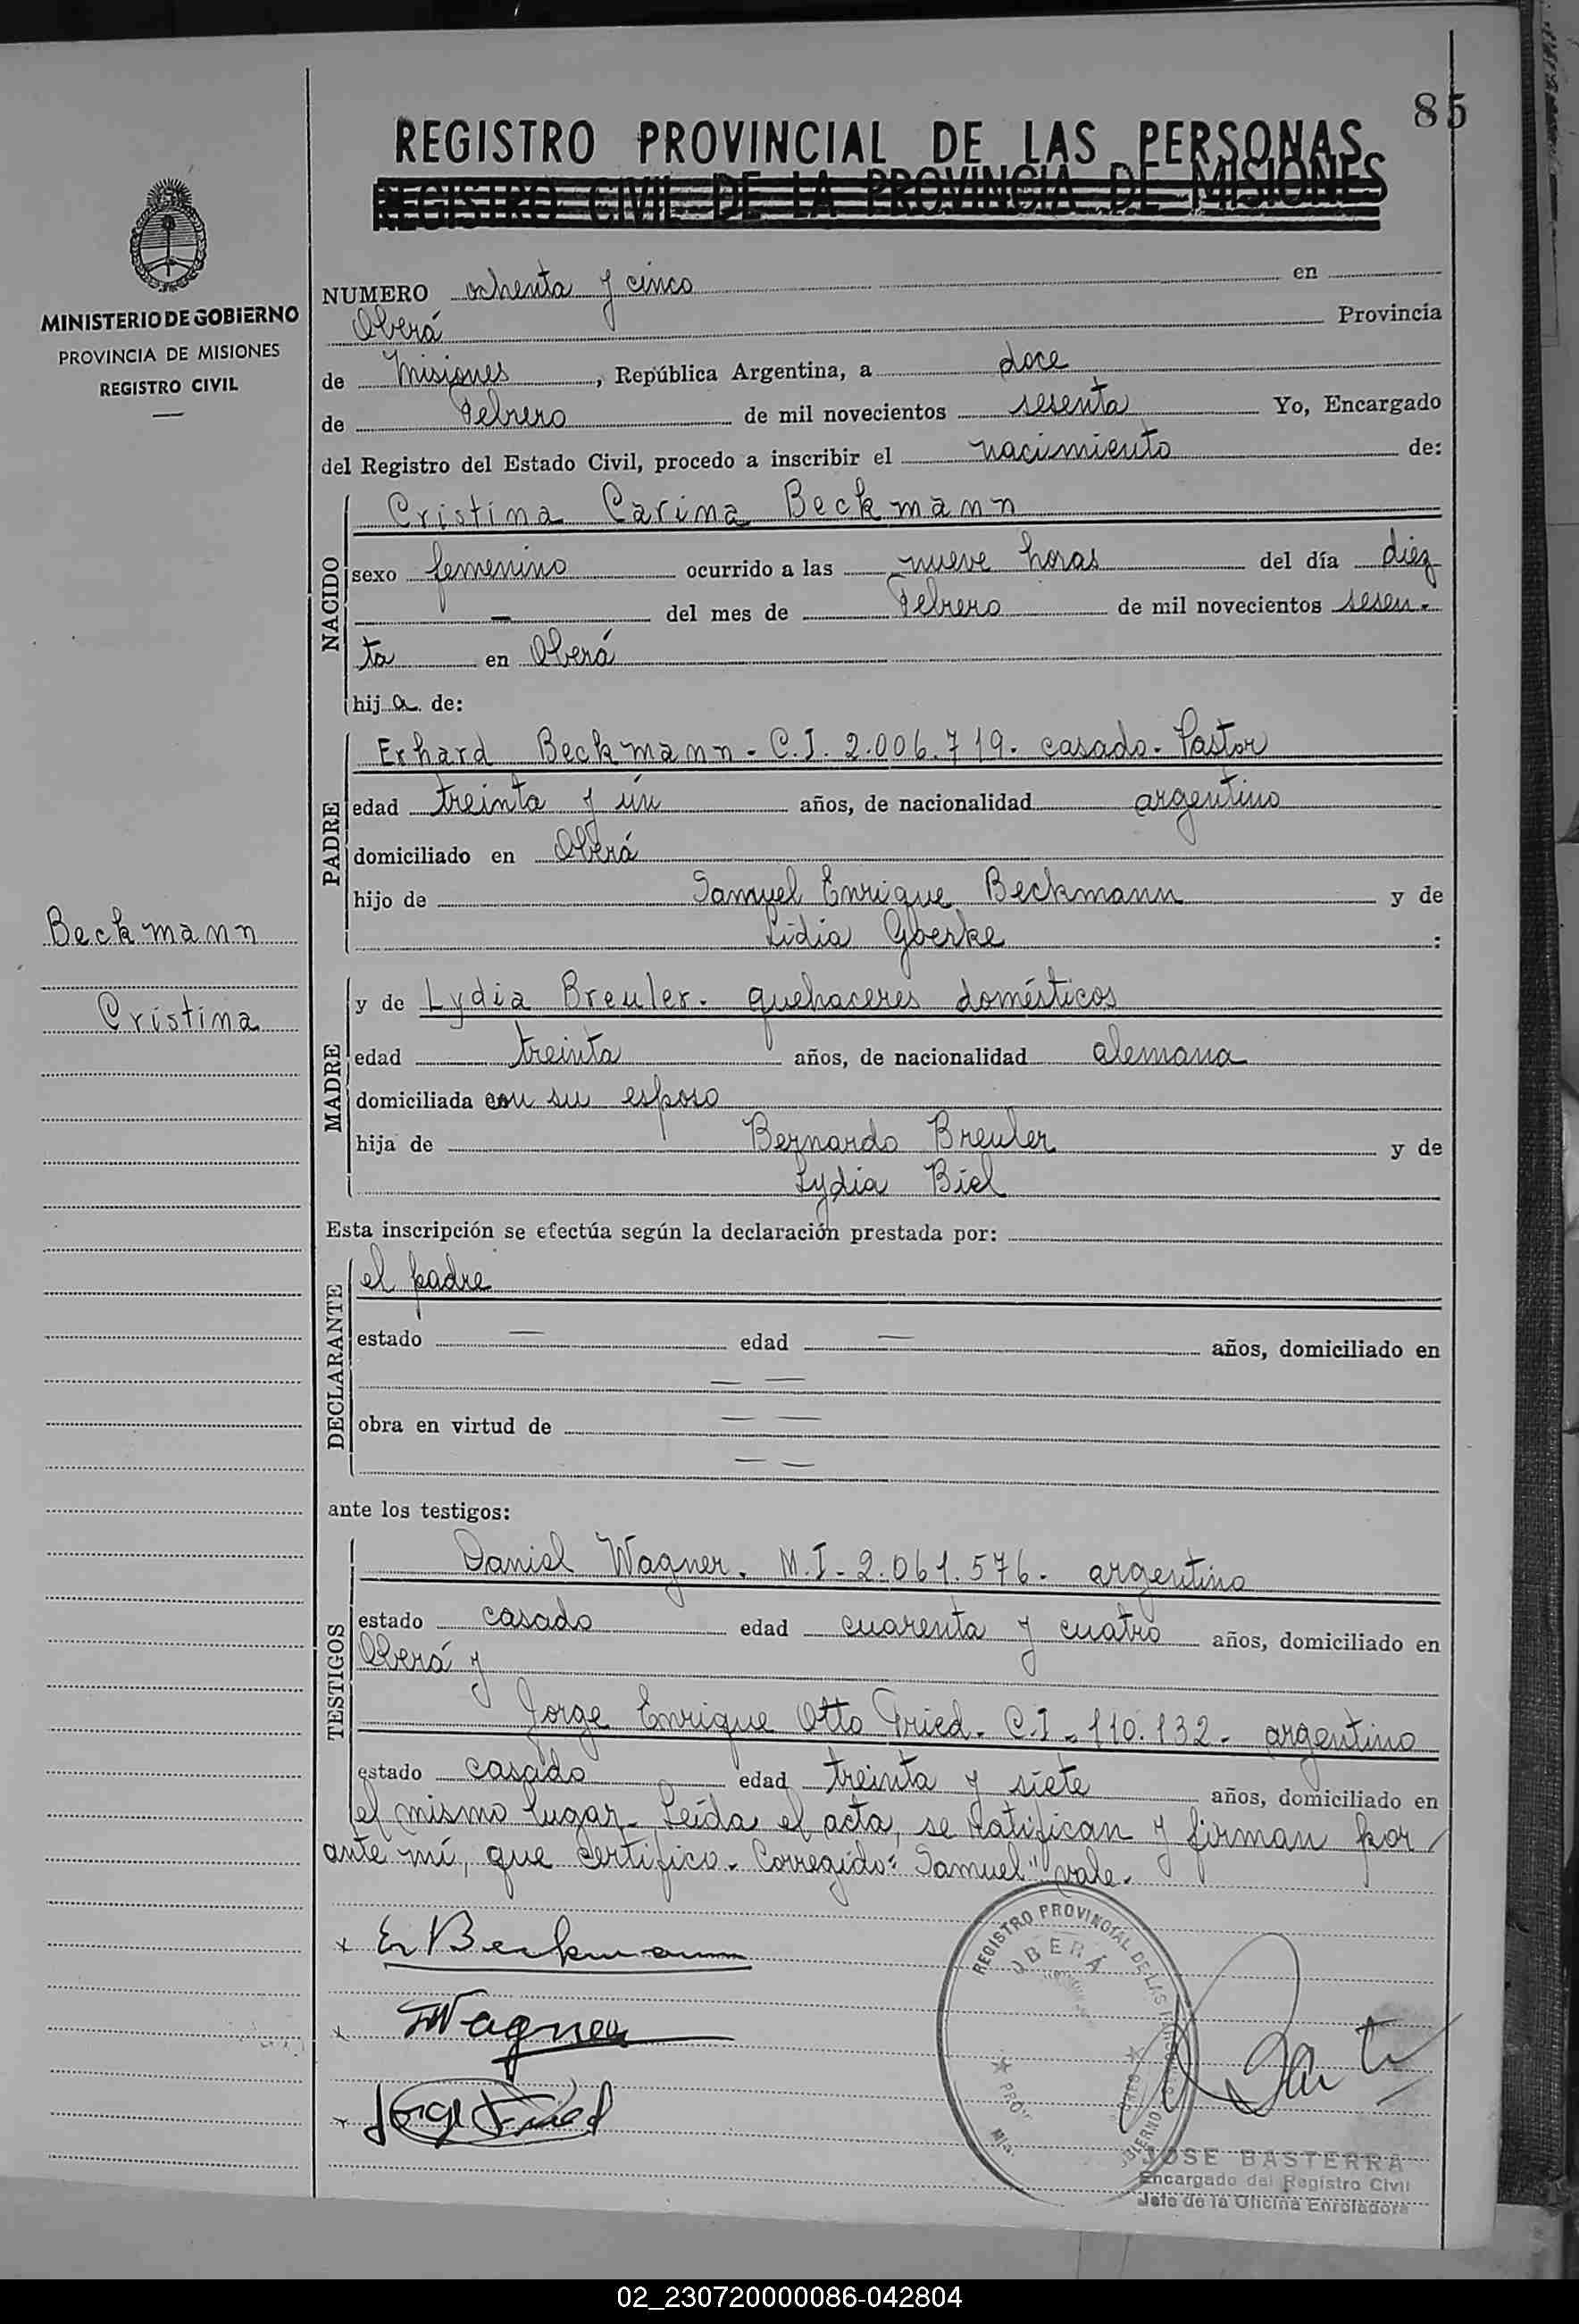 85
REGISTRO PROVINCIAL DE LAS PERSONAS
REGISTRO CIVIL DE LA PROVINCIA DE MISIONES
MINISTERIO DE GOBIERNO
PROVINCIA DE MISIONES
REGISTRO CIVIL
NUMERO ochenta y cinco en
Oberá Provincia
de Misiones, República Argentina, a doce
de Febrero de mil novecientos sesenta Yo, Encargado
del Registro del Estado Civil, procedo a inscribir el nacimiento de:
NACIDO
Cristina Carina Beckmann
sexo femenino ocurrido a las nueve horas del día diez
— del mes de Febrero de mil novecientos sesen-
ta en Oberá
hija de:
PADRE
Erhard Beckmann - C.I. 2.006.719. casado - Pastor
edad treinta y ún años, de nacionalidad argentino
domiciliado en Oberá
hijo de Samuel Enrique Beckmann y de
Lidia Goerke :
Beckmann
Cristina
MADRE
y de Lydia Breuler. quehaceres domésticos
edad treinta años, de nacionalidad alemana
domiciliada con su esposo
hija de Bernardo Breuler y de
Lydia Biel
Esta inscripción se efectúa según la declaración prestada por:
DECLARANTE
el padre
estado — edad — años, domiciliado en
— —
obra en virtud de — —
— —
ante los testigos:
TESTIGOS
Daniel Wagner. M.I - 2.061.576 - argentino
estado casado edad cuarenta y cuatro años, domiciliado en
Oberá y
Jorge Enrique Otto Fried - C.I - 110.132 - argentino
estado casado edad treinta y siete años, domiciliado en
el mismo lugar - Leída el acta, se ratifican y firman por
ante mí, que certifico - Corregido: "Samuel" vale.
x Er Beckmann
x Wagner
x Jorge Fried
REGISTRO PROVINCIAL DE LAS
OBERÁ
JOSE BASTERRA
Encargado del Registro Civil
Jefe de la Oficina Enroladora
02_230720000086-042804